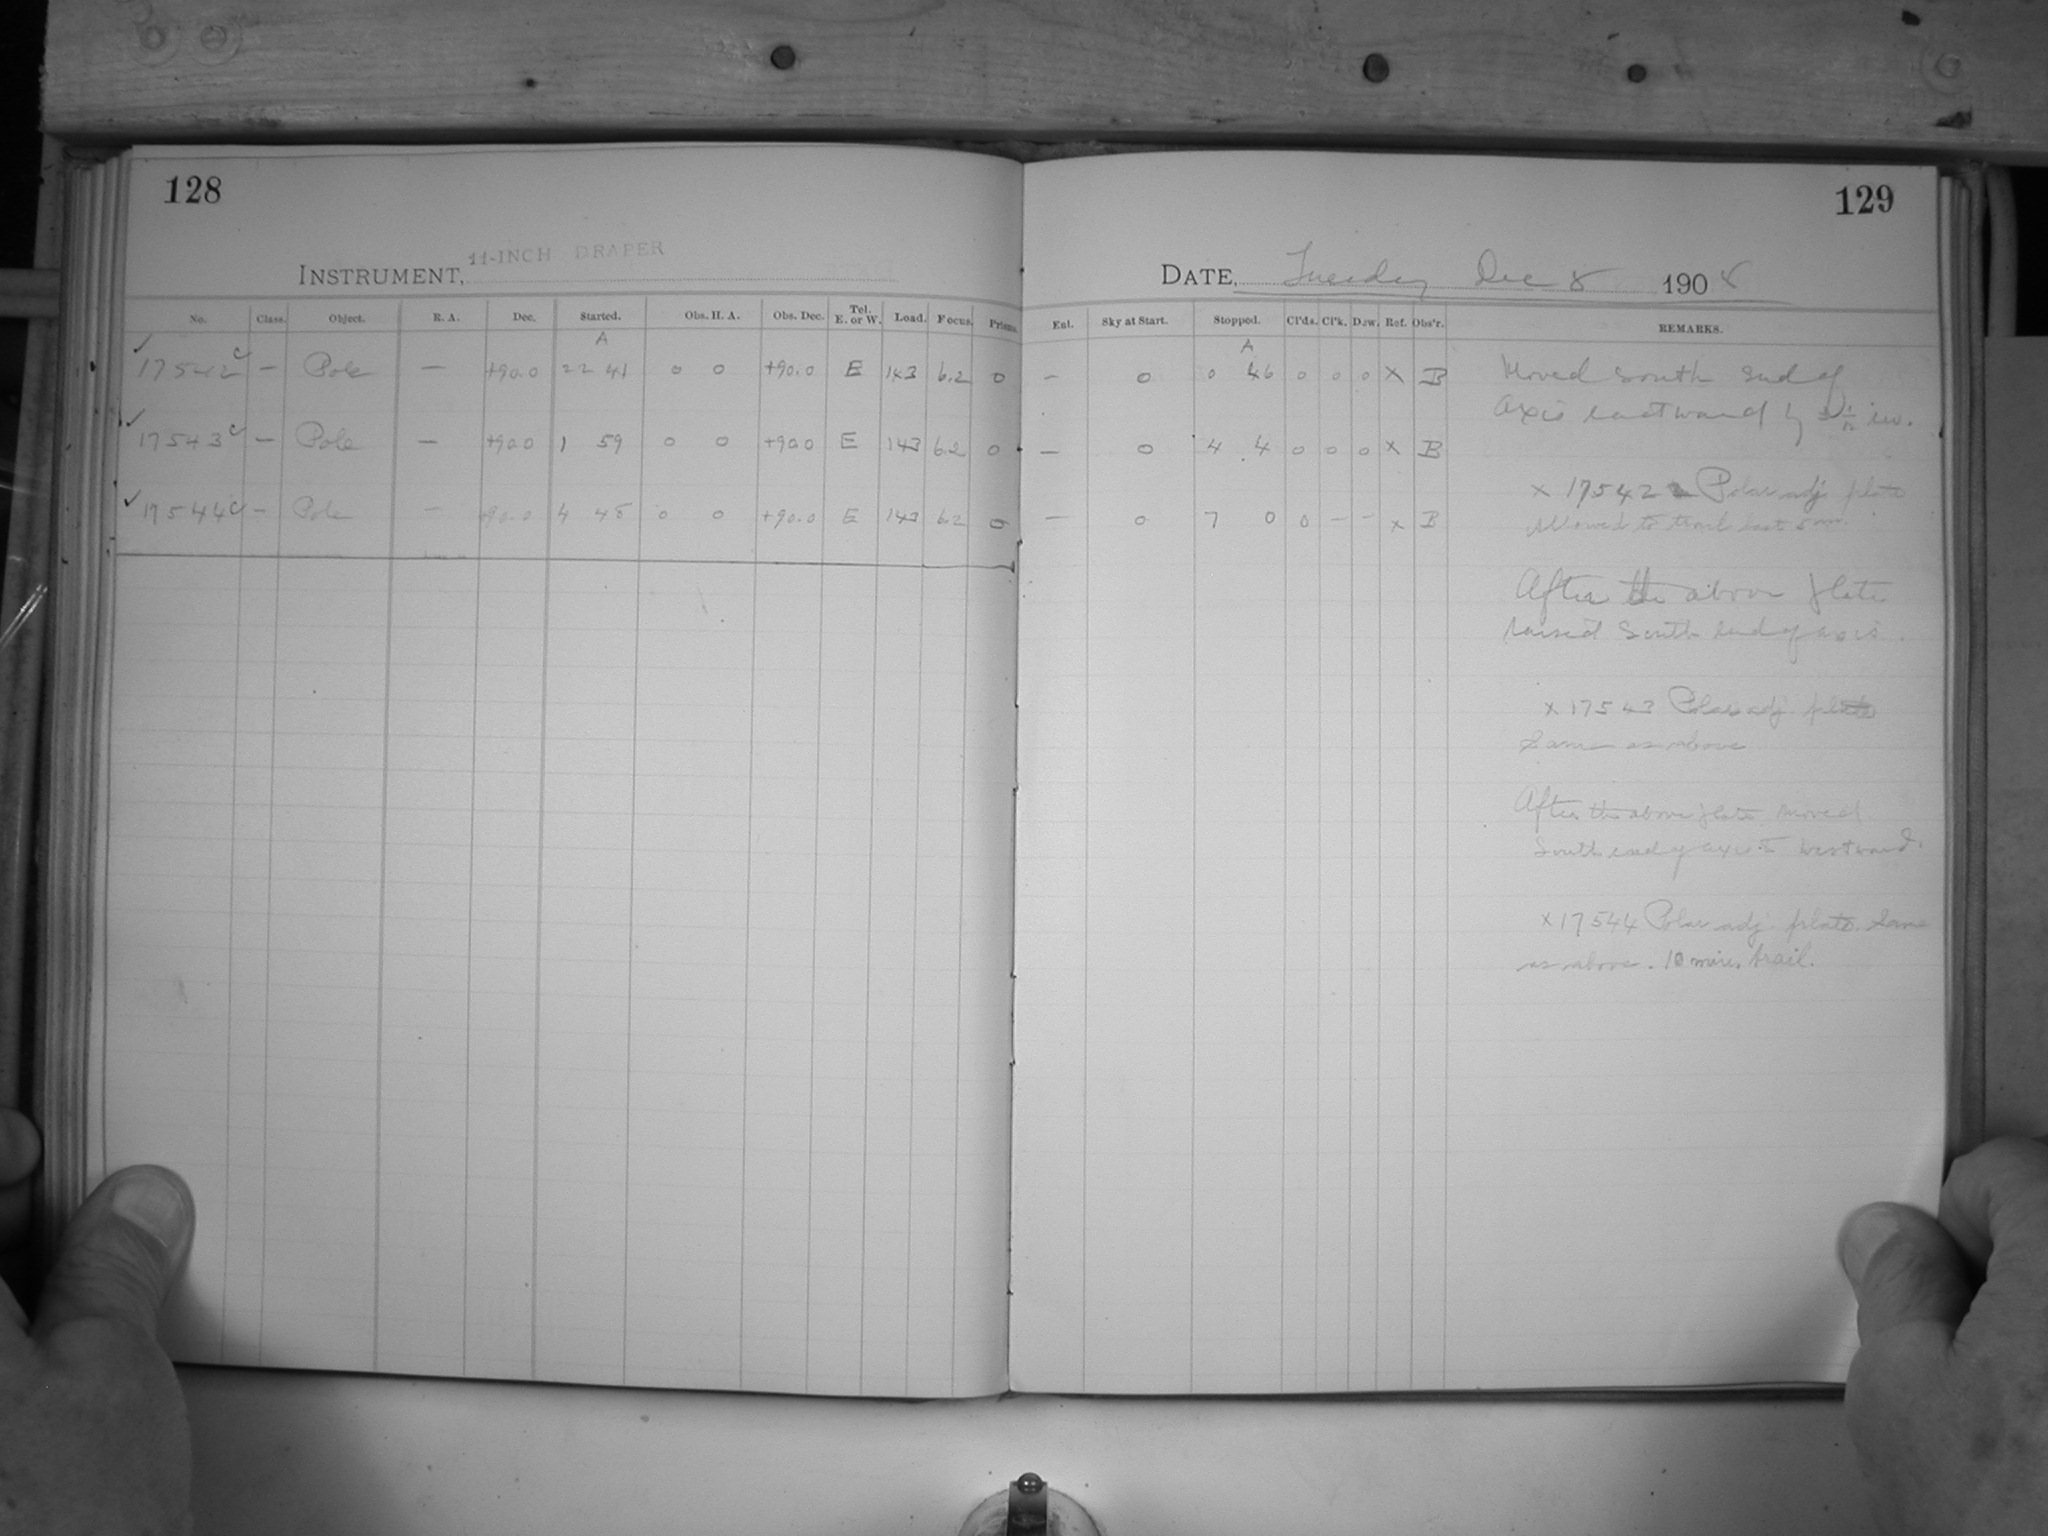 128
129
11-INCH DRAPER
INSTRUMENT,
DATE, Tuesday Dec 8 1908
No. Class. Object. R. A. Dec. Started. Obs. H. A. Obs. Dec. Tel. E. or W. Load. Focus. Prisms. Ent. Sky at Start. Stopped. Cl'ds. Cl'k. Dew. Ref. Obs'r. REMARKS.
A A
✓ 17542 c — Pole — +90.0 22 41 0 0 +90.0 E 143 6.2 0 — 0 0 46 0 0 0 X B
✓ 17543 c — Pole — +90.0 1 59 0 0 +90.0 E 143 6.2 0 — 0 4 4 0 0 0 X B
✓ 17544 c — Pole — +90.0 4 48 0 0 +90.0 E 143 6.2 0 — 0 7 0 0 — — x B
Moved South End of
axis eastward by in.
x 17542 Polar adj. plate
Allowed to trail last 5 min.
After the above plate
raised South end of axis.
x 17543 Polar adj. plate
Same as above
After the above plate moved
South end of axis to westward.
x 17544 Polar adj. plate. Same
as above. 10 mins. trail.